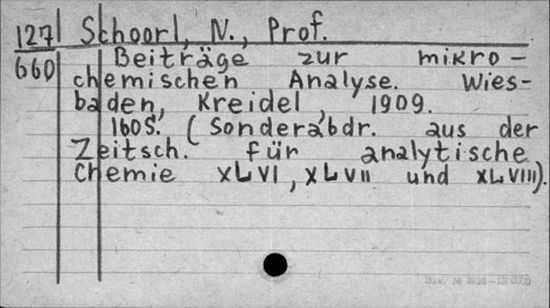 127 Schoorl, N., Prof.
660 Beiträge zur mikro-
chemischen Analyse. Wies-
baden, Kreidel, 1909.
160S. (Sonderabdr. aus der
Zeitsch. für analytische
Chemie XLVI, XLVII und XLVIII).